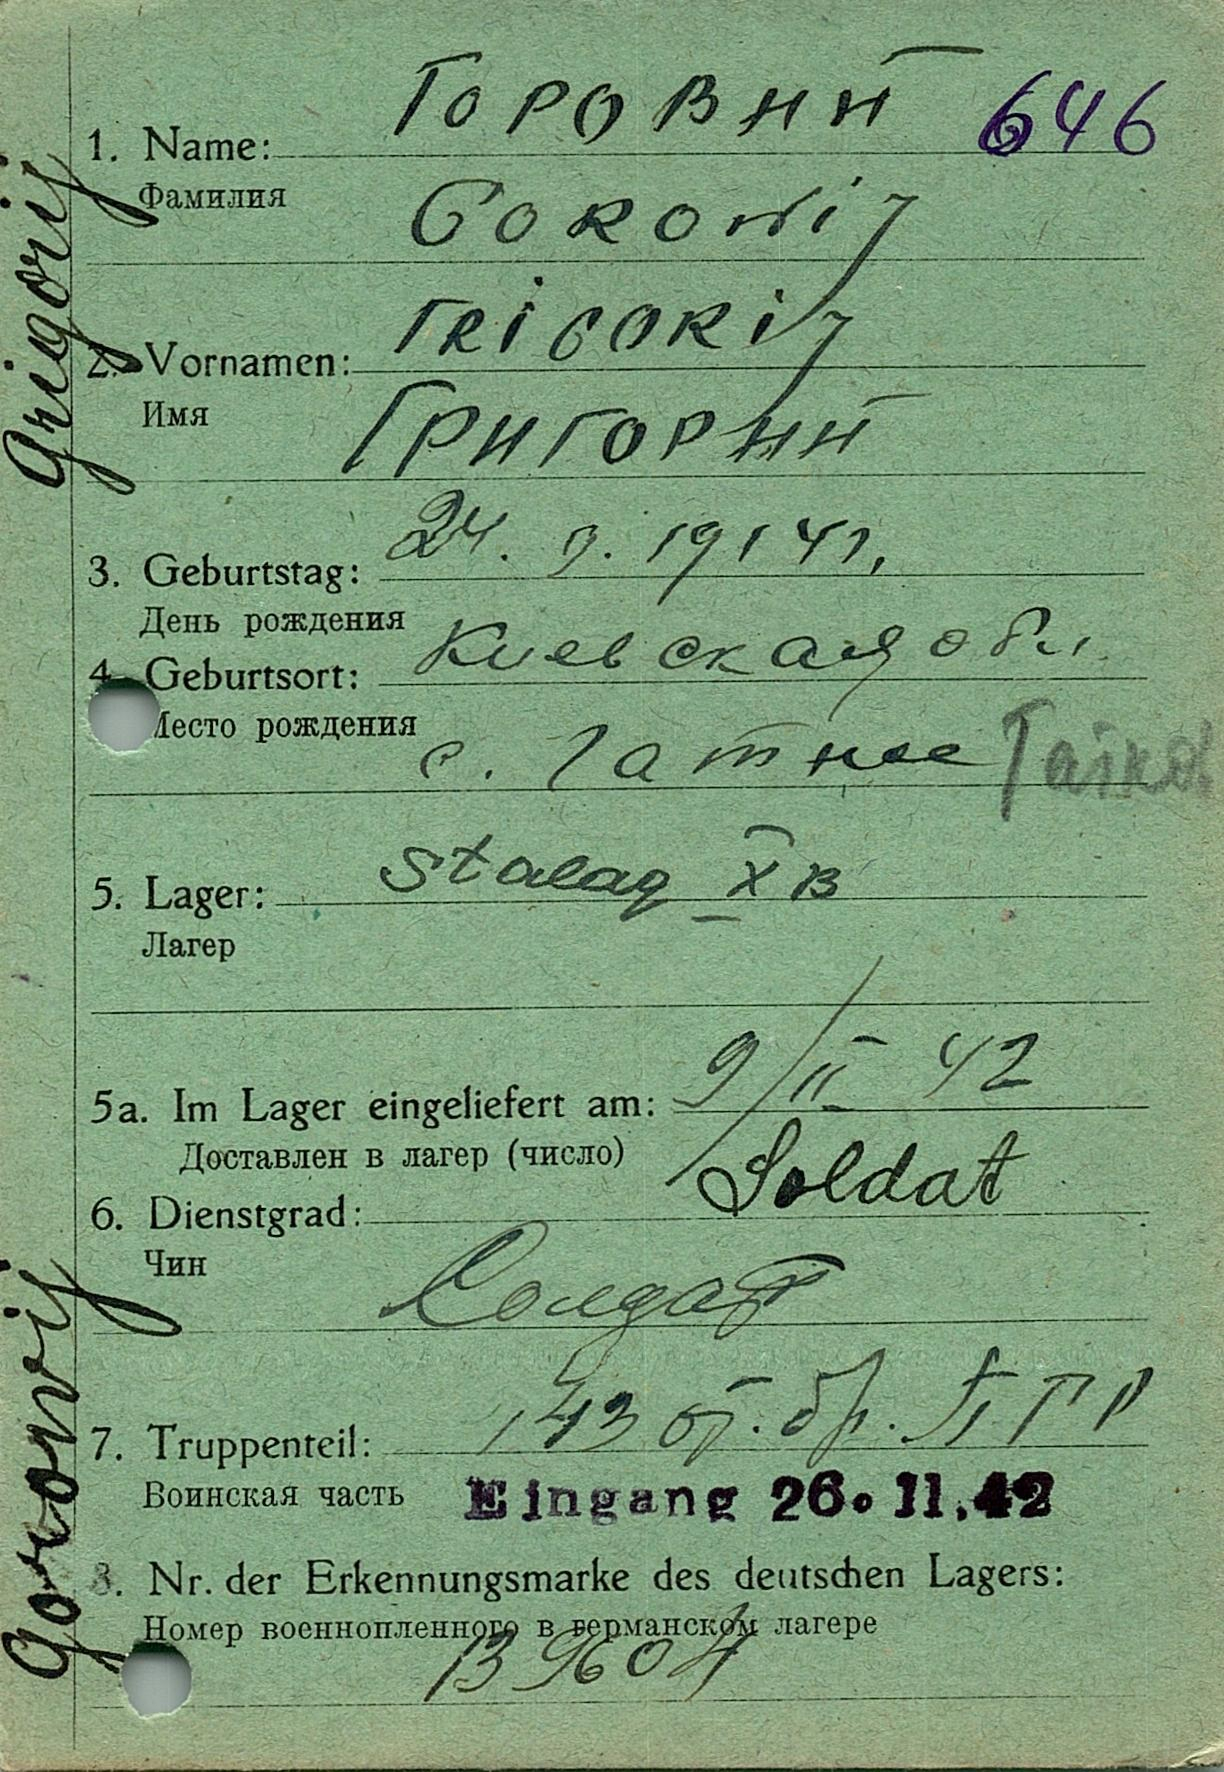 ГОРОВИЙ 646
1. Name:
Фамилия
GOROWij
GRiGORij
2. Vornamen:
Имя
ГРИГОРИЙ
3. Geburtstag: 24. 3. 1914
День рождения
4. Geburtsort: Киевская обл
Место рождения
с. Гатное
5. Lager: Stalag X B
Лагер
5a. Im Lager eingeliefert am: 9/II 42
Доставлен в лагер (число)
6. Dienstgrad: Soldat
Чин
Солдат
7. Truppenteil: 143
Воинская часть Eingang 26. 11. 42
8. Nr. der Erkennungsmarke des deutschen Lagers:
Номер военнопленного в германском лагере
Gorovij Grigorij